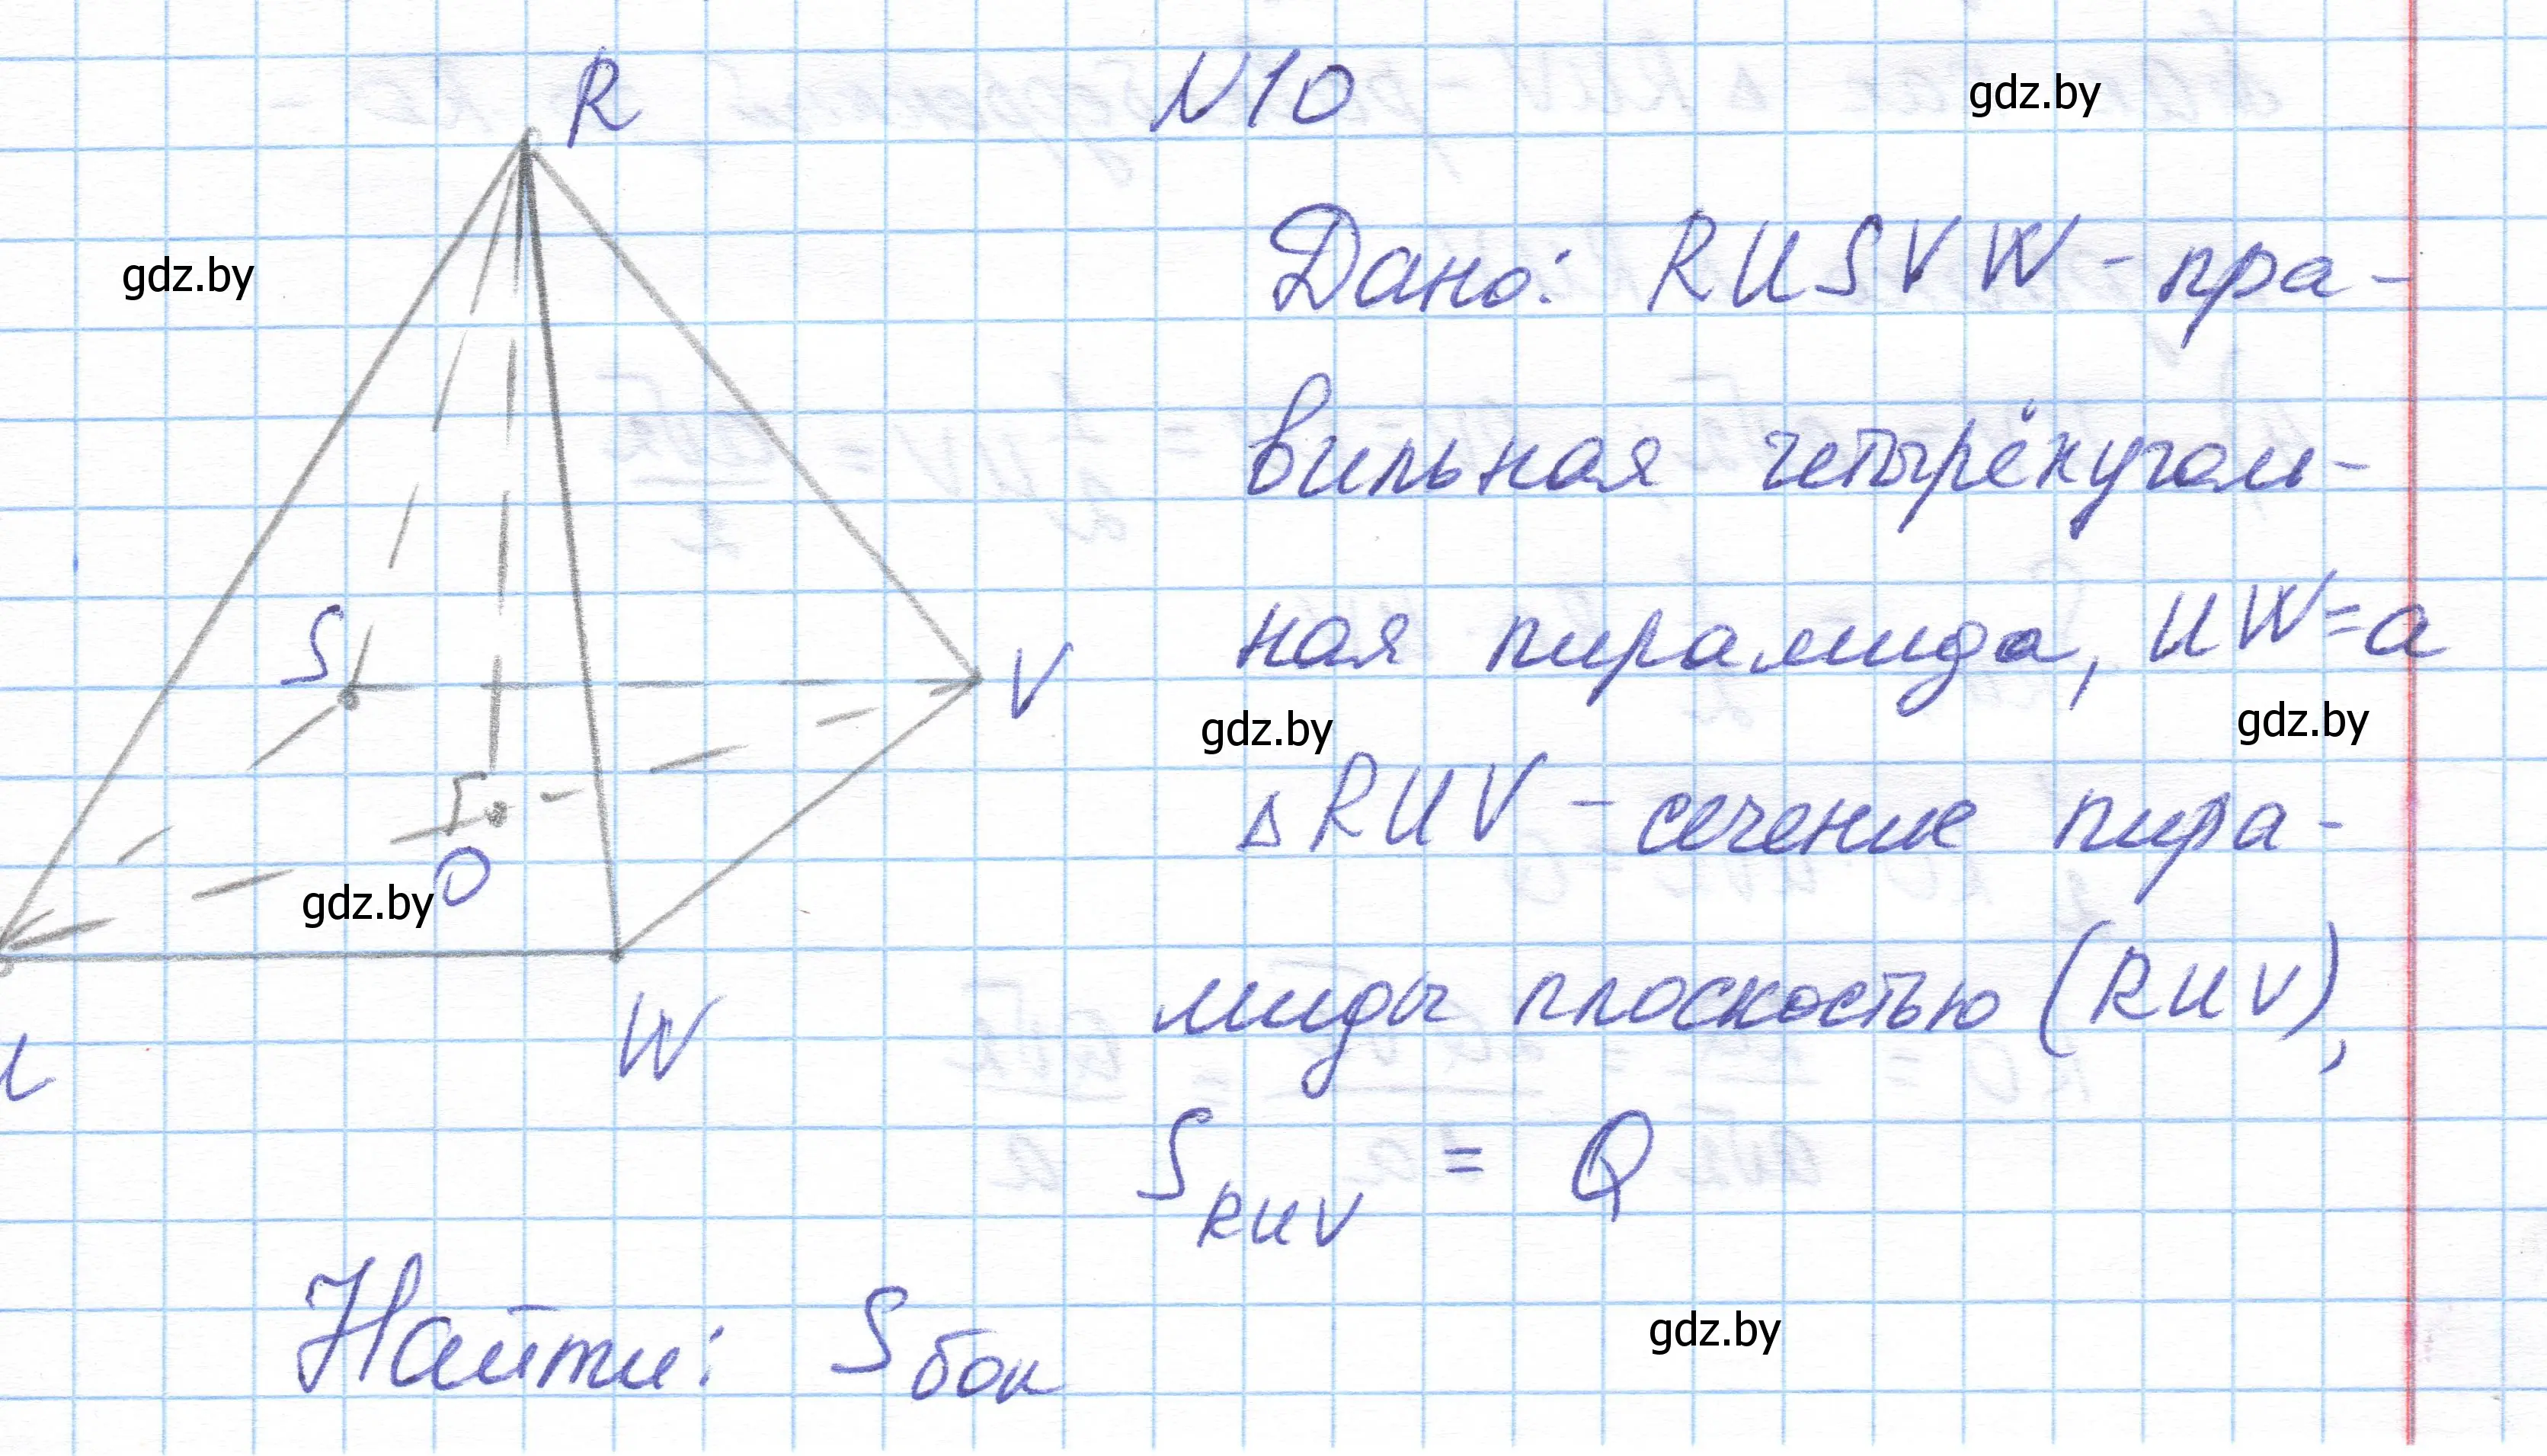 R
N10
gdz.by
gdz.by
Дано: RUSVW - пра-
вильная четырёхуголь-
ная пирамида, UW=a
S
V
gdz.by
gdz.by
△RUV - сечение пира-
O
gdz.by
миды плоскостью (RUV),
W
S RUV = Q
gdz.by
Найти: S бок